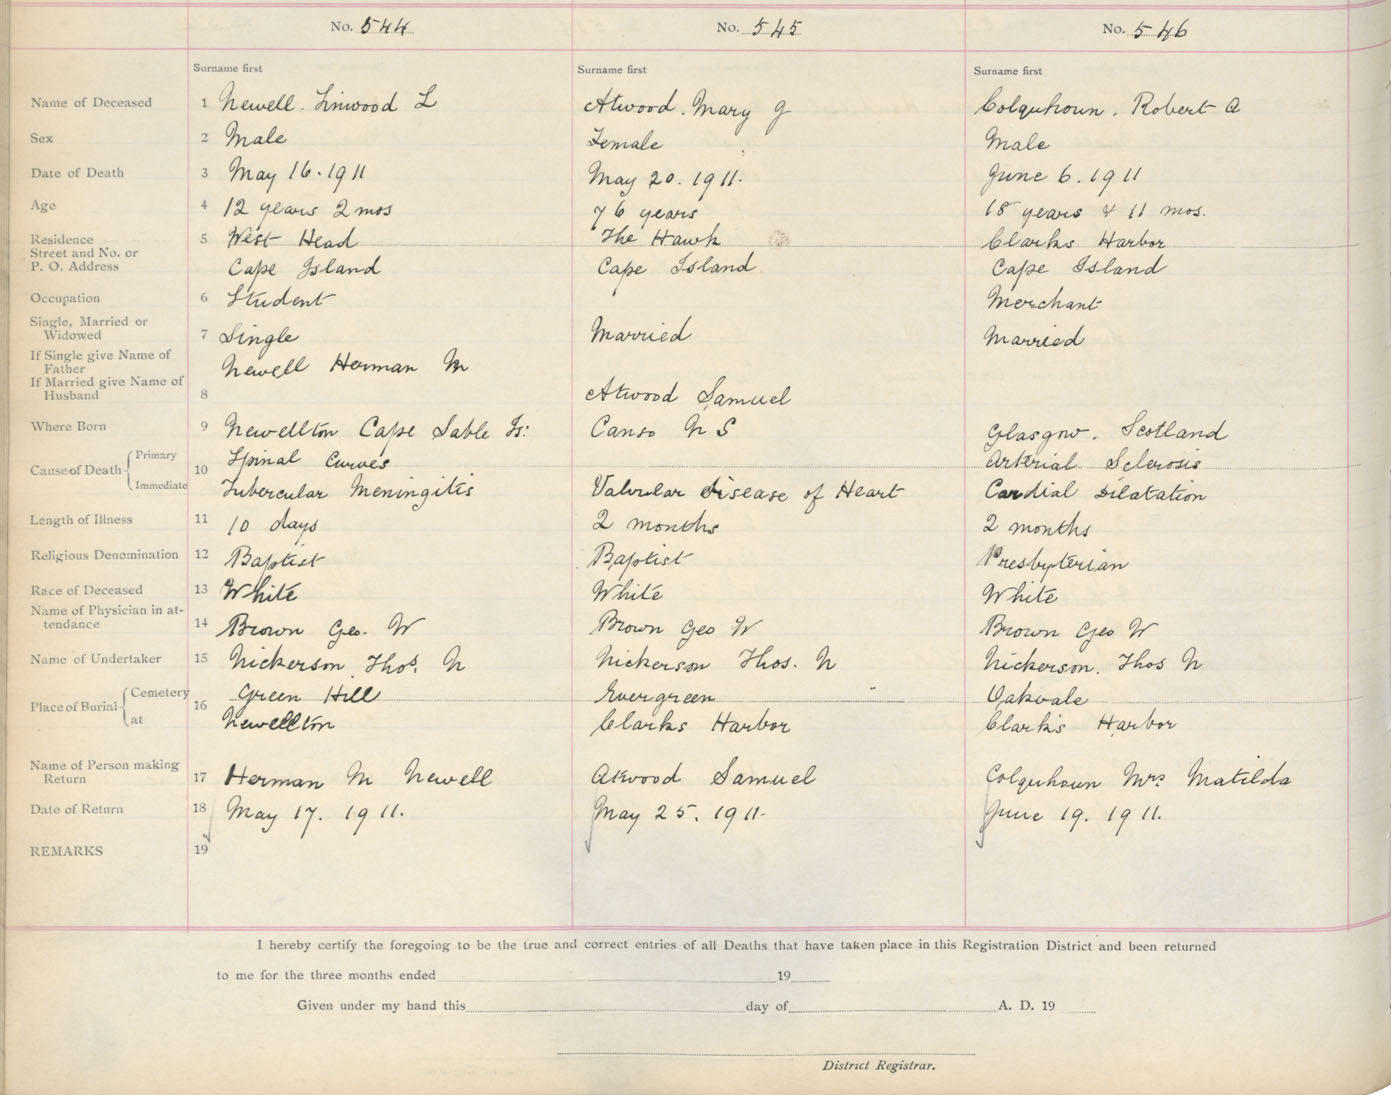 No. 544 No. 545 No. 546
Surname first Surname first Surname first
Name of Deceased 1 Newell. Linwood L Atwood. Mary J Colquhoun. Robert A
Sex 2 Male Female Male
Date of Death 3 May 16. 1911 May 20. 1911. June 6. 1911
Age 4 12 years 2 mos 76 years 18 years & 11 mos.
Residence 5 West Head The Hawk Clarks Harbor
Street and No. or
P. O. Address Cape Island Cape Island Cape Island
Occupation 6 Student Merchant
Single, Married or
Widowed 7 Single Married Married
If Single give Name of
Father Newell Herman M
If Married give Name of
Husband 8 Atwood Samuel
Where Born 9 Newellton Cape Sable Is: Canso N S Glasgow. Scotland
Cause of Death Primary 10 Spinal Curves Arterial Sclerosis
Immediate Tubercular Meningitis Valvular disease of Heart Cardial Dilatation
Length of Illness 11 10 days 2 months 2 months
Religious Denomination 12 Baptist Baptist Presbyterian
Race of Deceased 13 White White White
Name of Physician in at-
tendance 14 Brown Geo. W Brown Geo W Brown Geo W
Name of Undertaker 15 Nickerson Thos. N Nickerson Thos. N Nickerson. Thos N
Place of Burial Cemetery 16 Green Hill Evergreen Oakvale
at Newellton Clarks Harbor Clark's Harbor
Name of Person making
Return 17 Herman M Newell Atwood Samuel Colquhoun Mrs Matilda
Date of Return 18 May 17. 1911. May 25. 1911. June 19. 1911.
REMARKS 19
I hereby certify the foregoing to be the true and correct entries of all Deaths that have taken place in this Registration District and been returned
to me for the three months ended 19
Given under my hand this day of A. D. 19
District Registrar.